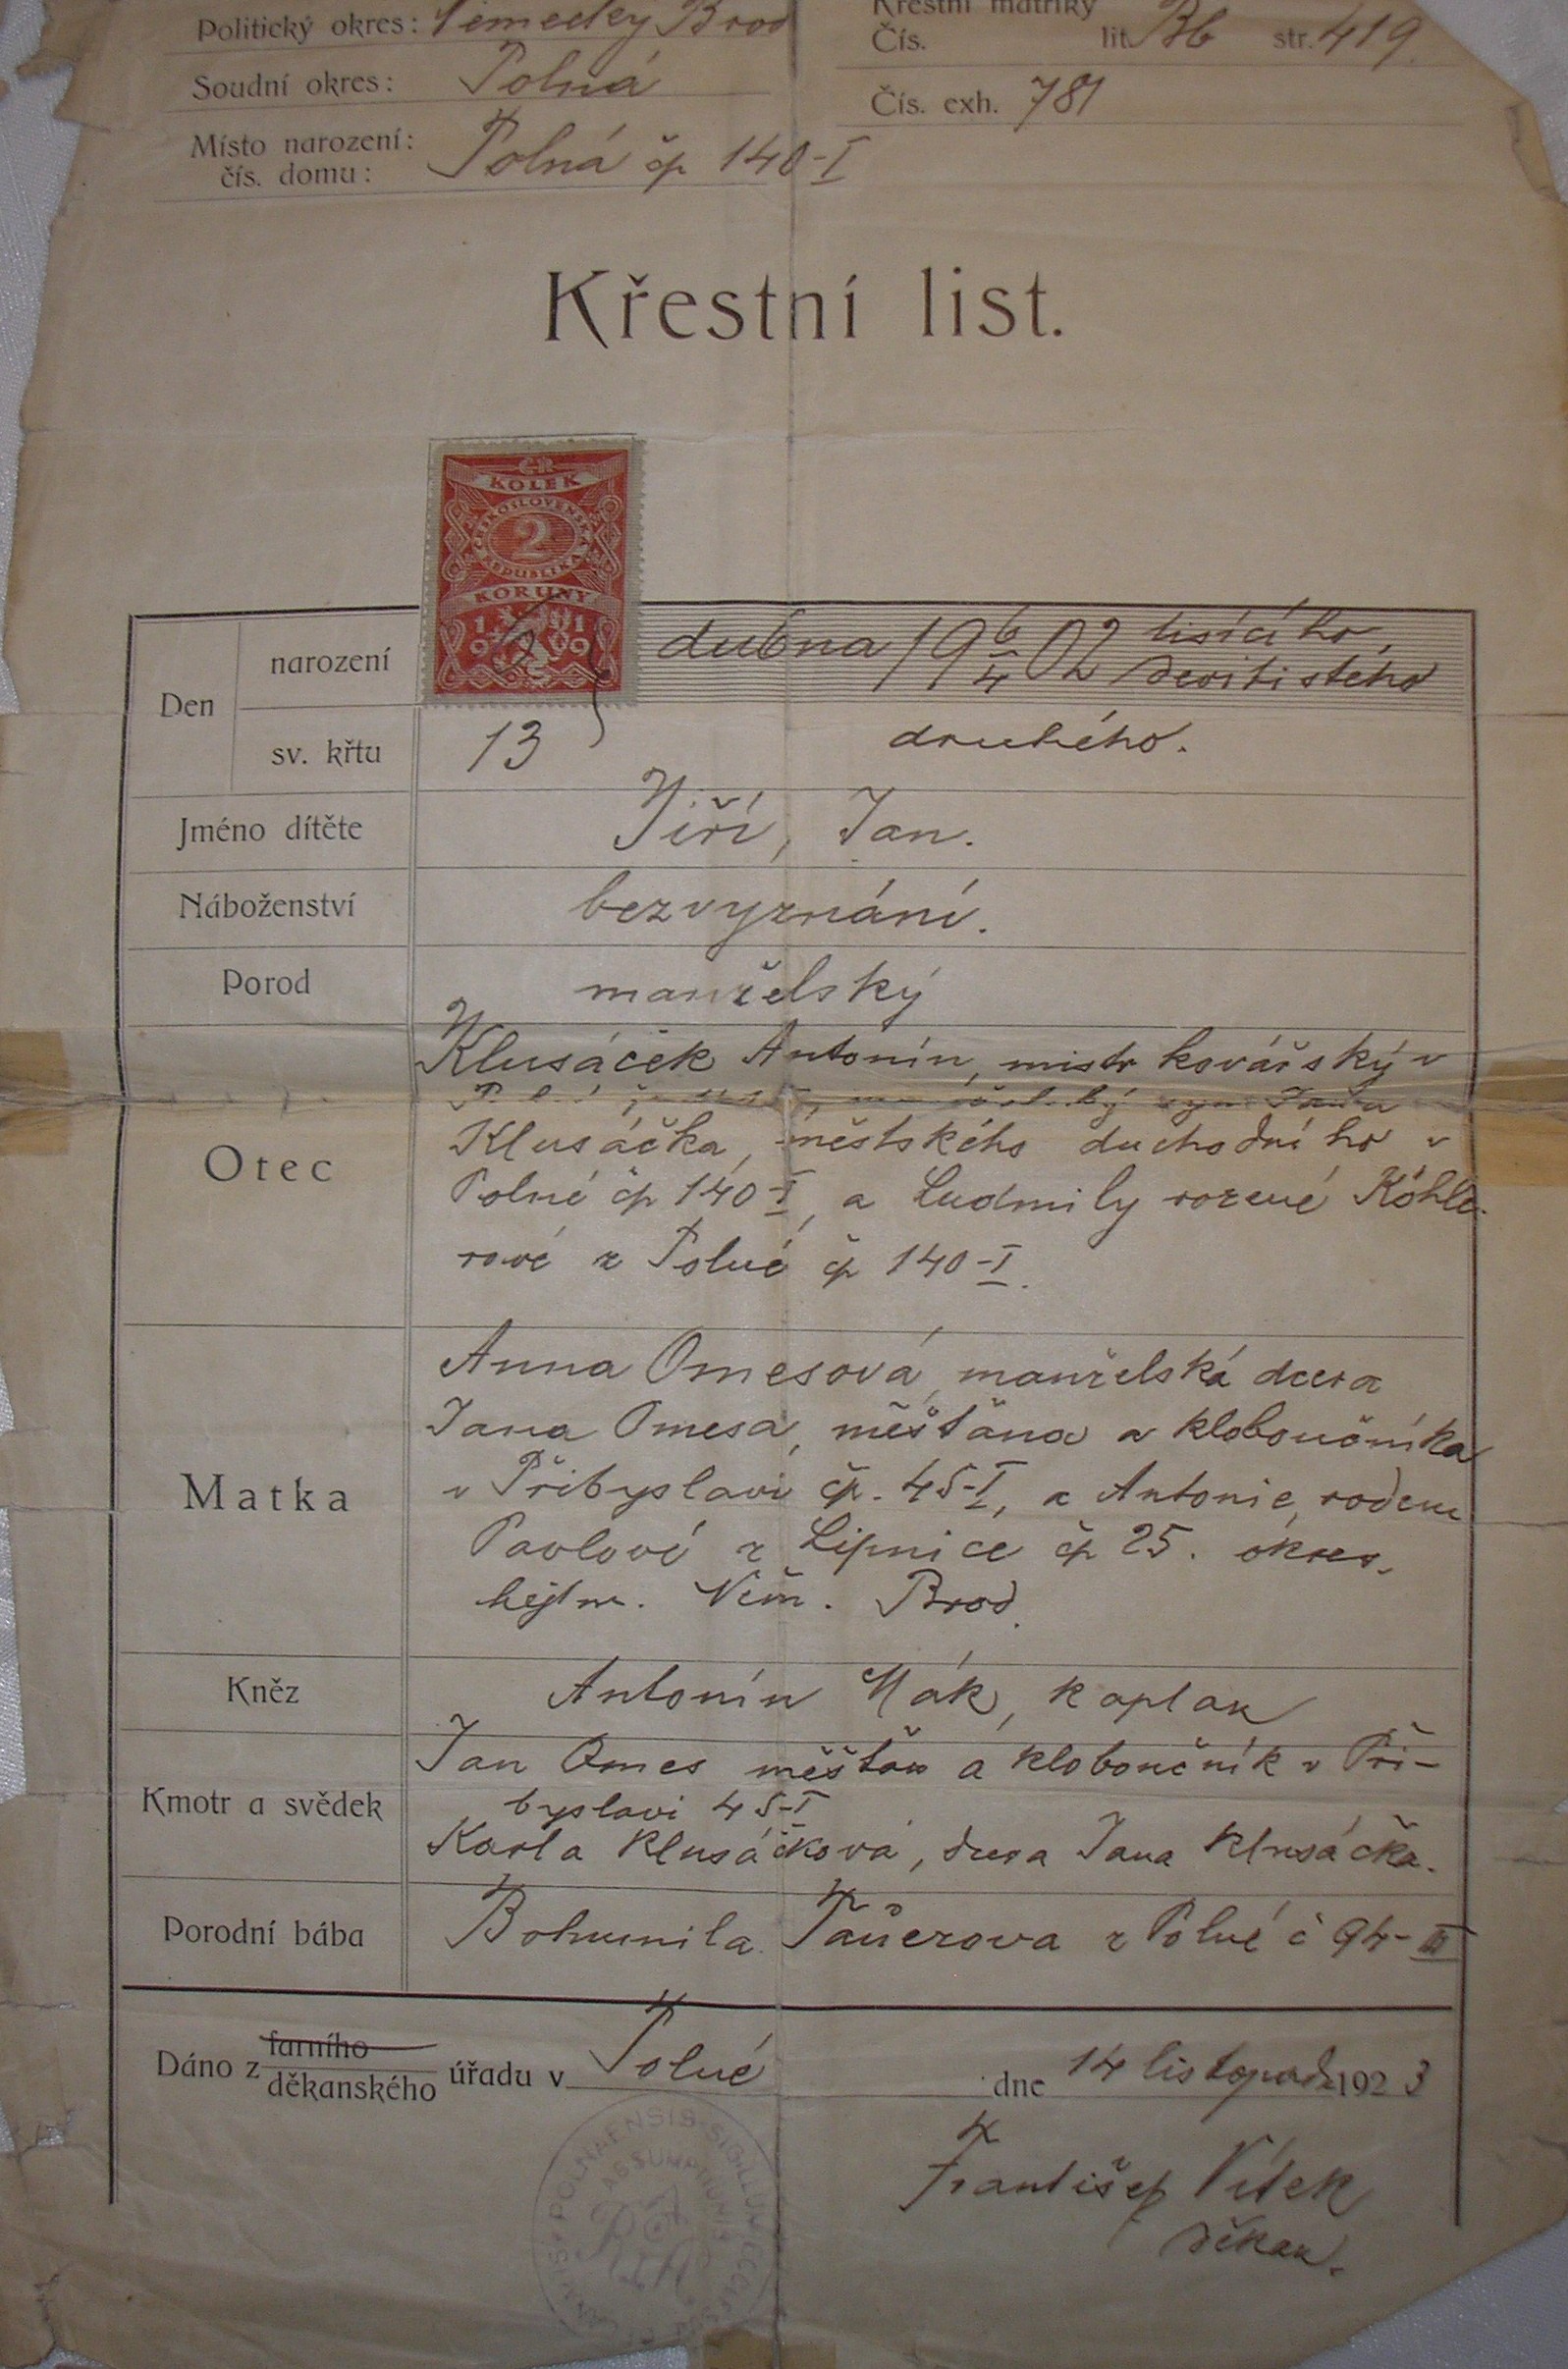 Politický okres: Německý Brod
Křestní matriky
Čís. lit. Bb str. 419.
Soudní okres: Polná
Čís. exh. 781
Místo narození:
čís. domu: Polná čp 140-I
Křestní list.
ČR
KOLEK
ČESKOSLOVENSKÁ
2
REPUBLIKA
KORUNY
1919
Den
narození
dubna 19 6/4 02 tisícího,
devítistého
sv. křtu 13 druhého.
Jméno dítěte Jiří, Jan.
Náboženství bezvyznání.
Porod manželský
Otec
Klusáček Antonín, mistr kovářský v
syn Jana
Klusáčka, městského duchodního v
Polné čp 140-I, a Ludmily rozené Köhle-
rové z Polné čp 140-I.
Matka
Anna Omesová, manželská dcera
Jana Omesa, měšťana a kloboučníka
v Přibyslavi čp. 45-I, a Antonie, rodem
Pavlové z Lipnice čp 25. okres.
hejtm. Něm. Brod.
Kněz Antonín Mák, kaplan
Kmotr a svědek
Jan Omes měšťan a kloboučník v Při-
byslavi 45-I
Karla Klusáčková, dcera Jana Klusáčka.
Porodní bába Bohumila z Polné č 94-III
Dáno z farního
děkanského úřadu v Polné
dne 14 listopadu 1923
František Vítek
děkan.
POLNAENSIS SIGILLUM ECCLESIAE
ASSUMPTIONIS